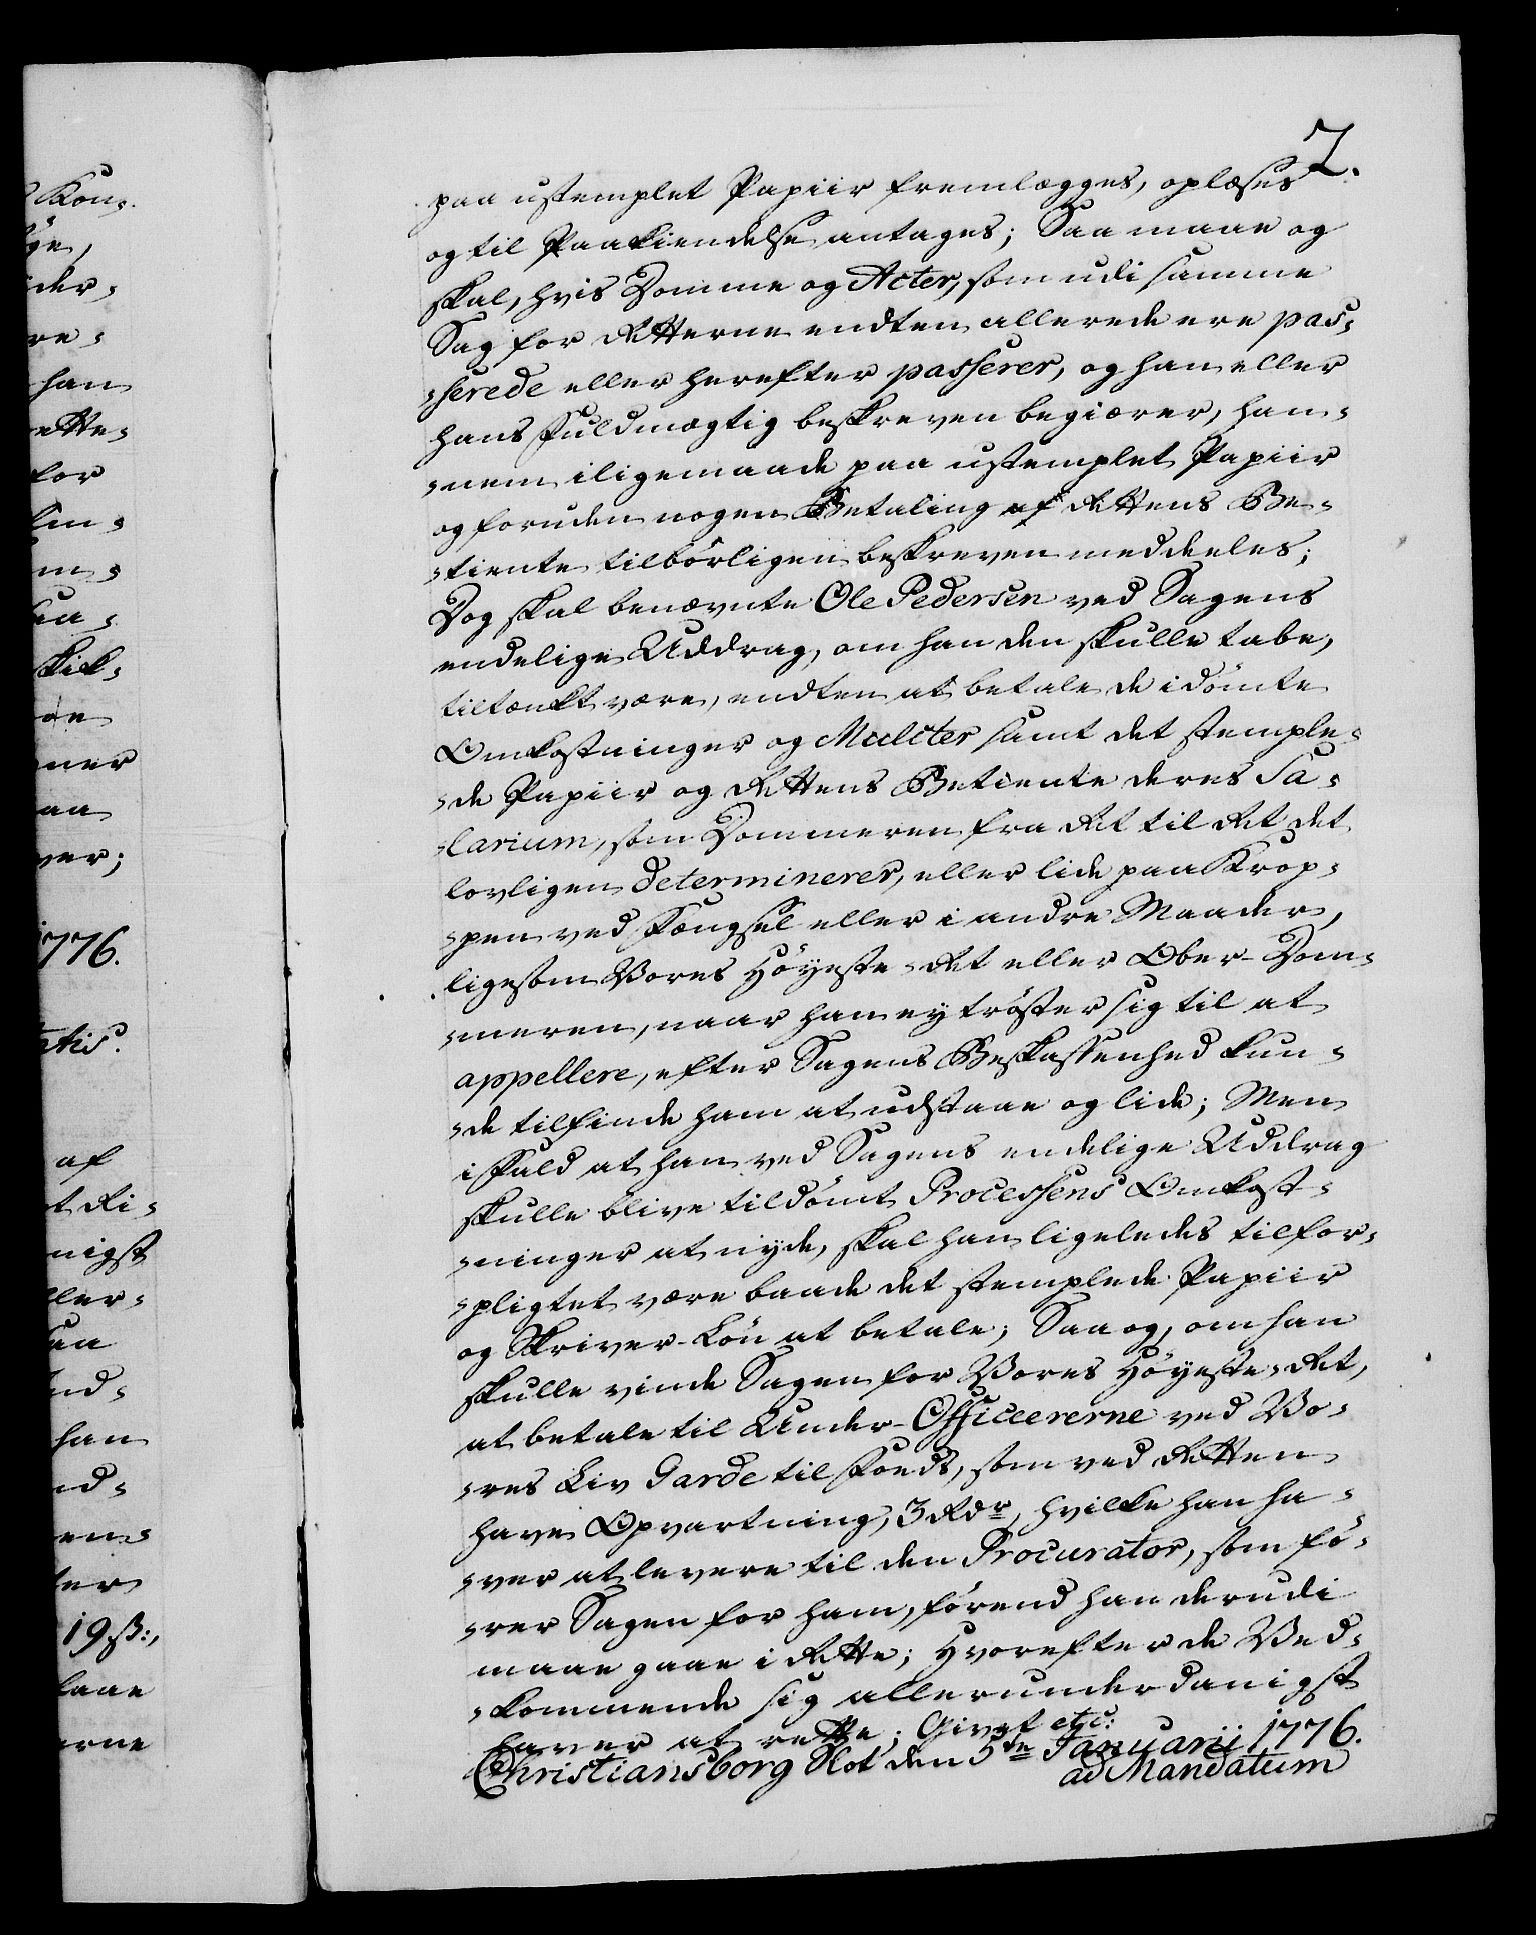 Kon-
ge,
der-
re-
han
ette-
for
m-
aa-
skik-
ner
aa
ver;
1776.
af
t Ri-
nigst
ller-
saa
nd-
han
nd-
en-
ter
19 ß:,
laae
erne
2.
paa ustemplet Papiir fremlægges, oplæses
og til Paakiendelse antages; Saa maae og
skal, hvis Domme og Acter, som udi samme
Sag for Retterne endten allerede ere pas-
-serede eller herefter passerer, og han eller
hans Fuldmægtig beskreven begiærer, han-
-nem iligemaade paa ustemplet Papiir
og foruden nogen Betaling af Rettens Be-
-tiente tilbörligen beskreven meddeeles;
Dog skal benævnte Ole Pedersen ved Sagens
endelige Uddrag, om han den skulle tabe,
tiltænkt være, endten at betale de idömte
Omkostninger og Mulcter samt det stemple-
-de Papiir og Rettens Betiente deres Sa-
-larium, som Dommeren fra Ret til Ret det
lovligen determinerer, eller lide paa Krop-
-pen ved Fængsel eller i andre Maader,
ligesom Vores Höyeste-Ret eller Ober-Dom-
-meren, naar han ey tröster sig til at
appellere, efter Sagens Beskaffenhed kun-
-de tilfinde ham at udstaae og lide; Men
i Fald at han ved Sagens endelige Uddrag
skulle blive tildömt Processens Omkost-
-ninger at nyde, skal han ligeledes tilfor-
-pligtet være baade det stemplede Papiir
og Skriver-Lön at betale; Saa og, om han
skulle vinde Sagen for Vores Höyeste-Ret,
at betale til Under-Officeererne ved Vo-
-res Liv Garde til Foeds, som ved Retten
have Opvartning, 3 Rdr, hvilke han ha-
-ver at levere til den Procurator, som fö-
-rer Sagen for ham, förend han derudi
maae gaae i Rette; Hvorefter de Ved-
-kommende sig allerunderdanigst
haver at rette; Givet etc:
Christiansborg Slot den 5te Januarii 1776.
ad Mandatum